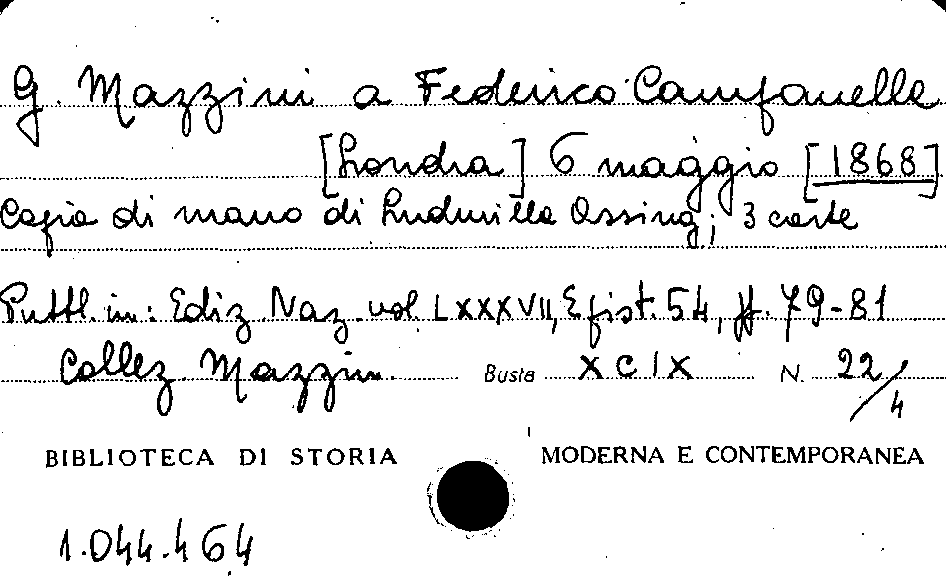 G. Mazzini a Federico Campanella
[Londra] 6 maggio [1868]
Copia di mano di Ludmilla Assing; 3 carte
Pubbl. in: Ediz. Naz. vol. LXXXVII, Epist. 54, pp. 79-81
Collez. Mazzini. Busta XCIX N. 22/4
BIBLIOTECA DI STORIA MODERNA E CONTEMPORANEA
1.044.464